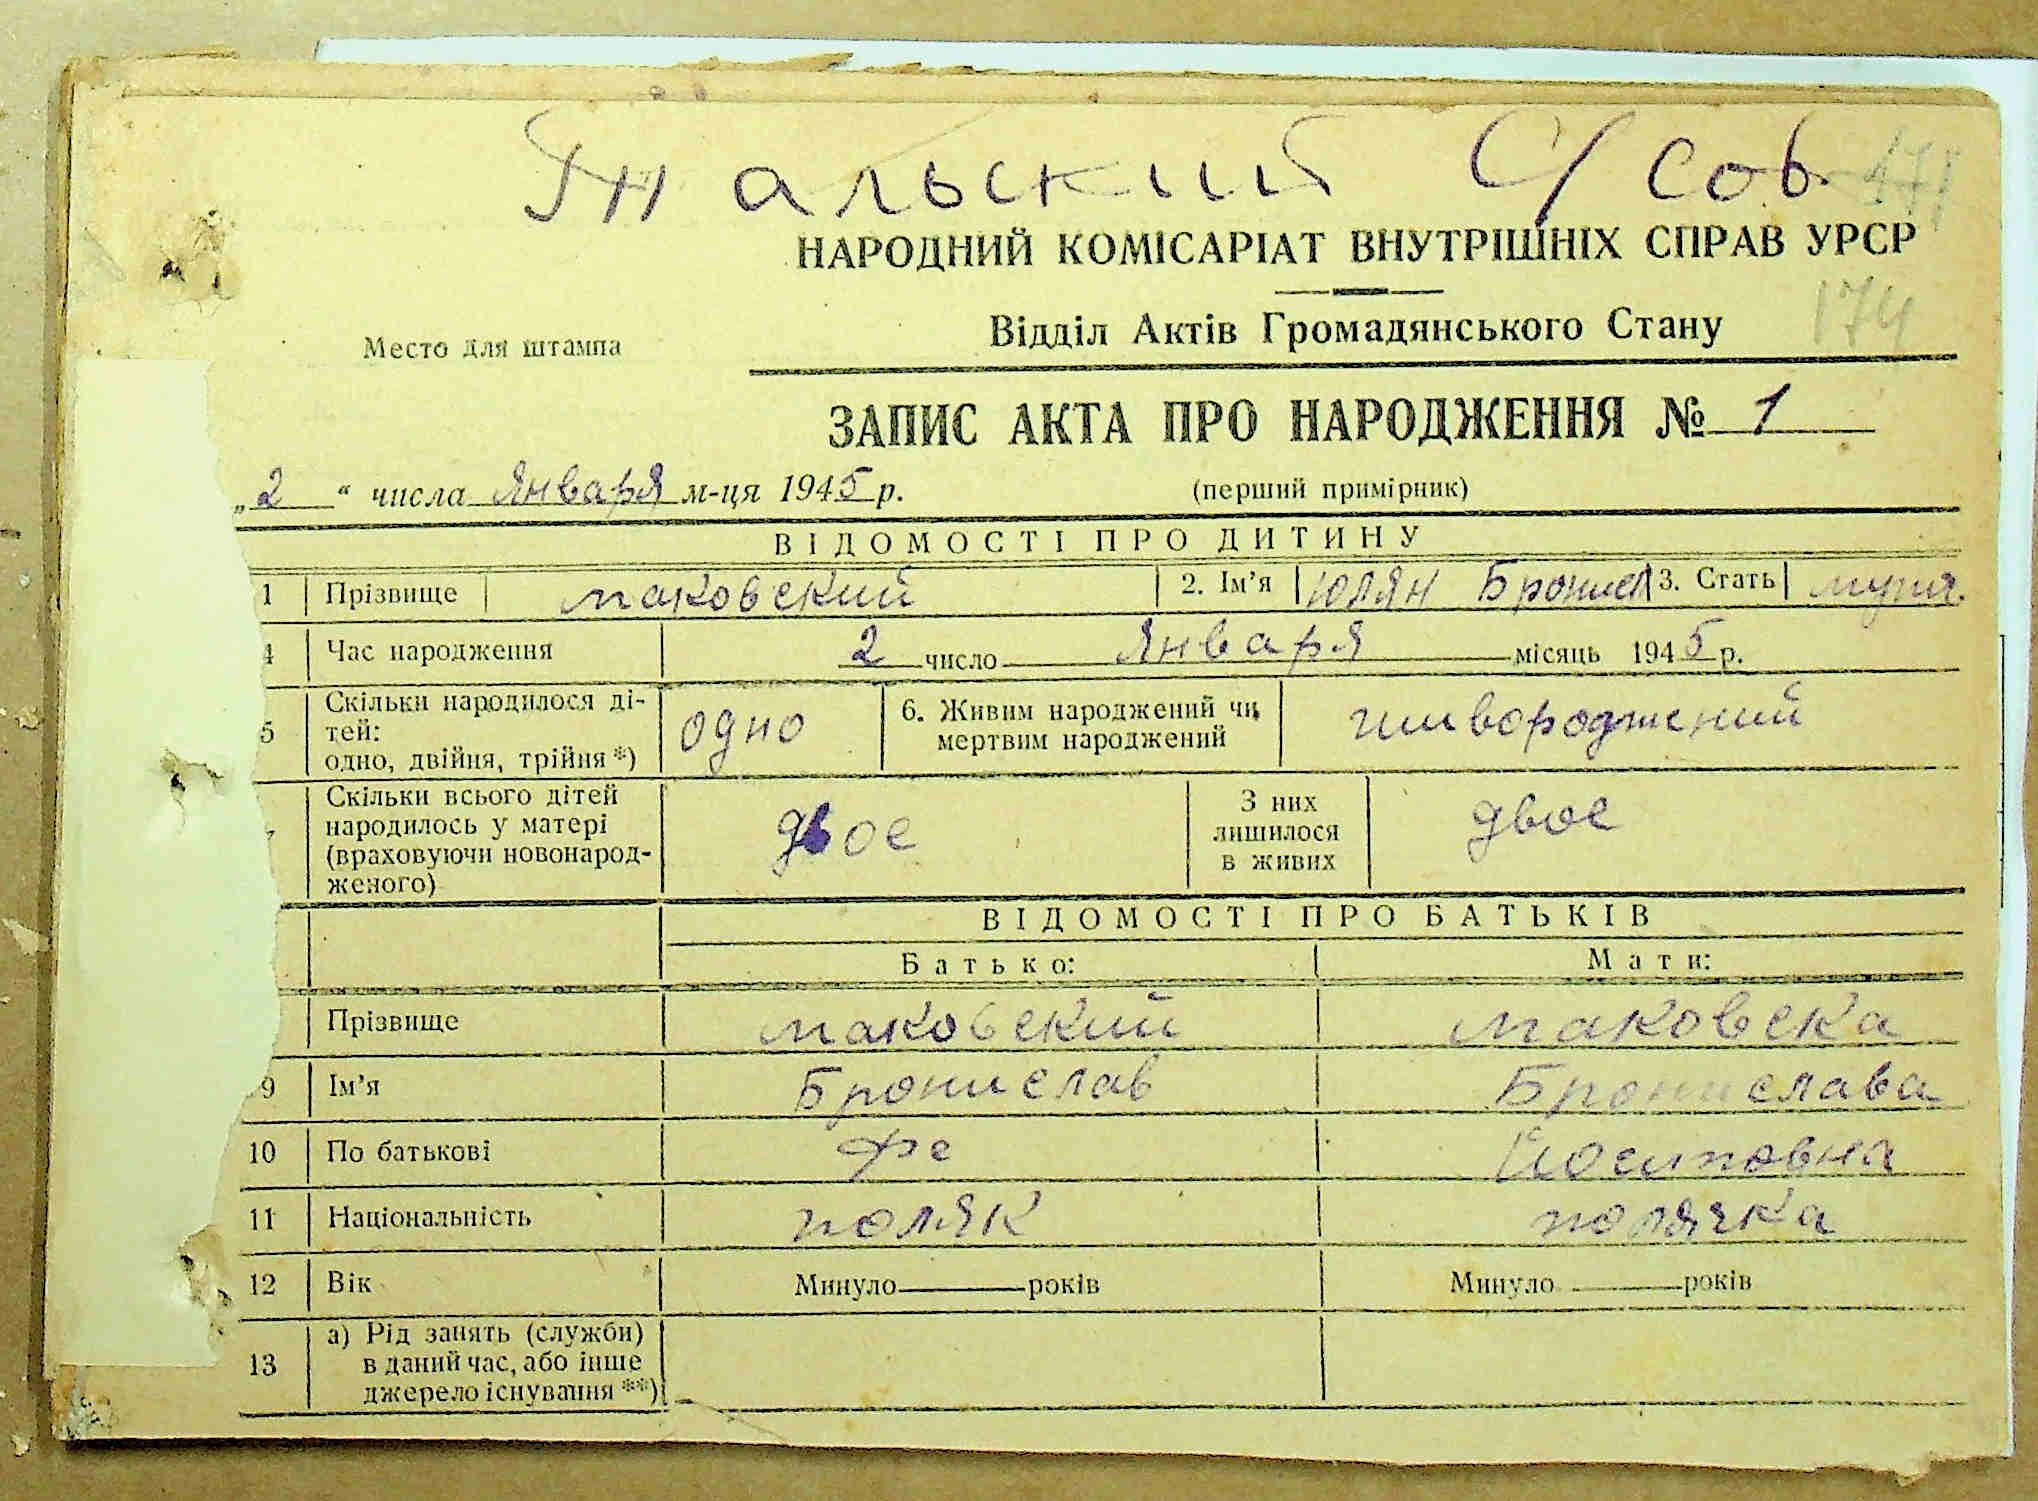 Янальский С/сов. 171
НАРОДНИЙ КОМІСАРІАТ ВНУТРІШНІХ СПРАВ УРСР
174
Место для штампа
Відділ Актів Громадянського Стану
ЗАПИС АКТА ПРО НАРОДЖЕННЯ № 1
„2“ числа Января м-ця 1945 р. (перший примірник)
ВІДОМОСТІ ПРО ДИТИНУ
1 Прізвище маковский 2. Ім’я Юлян Бронисл 3. Стать мужч.
4 Час народження 2 число Января місяць 1945 р.
5 Скільки народилося ді-
тей:
одно, двійня, трійня *) одно 6. Живим народжений чи
мертвим народжений живороджений
Скільки всього дітей
народилось у матері
(враховуючи новонарод-
женого) двое З них
лишилося
в живих двое
ВІДОМОСТІ ПРО БАТЬКІВ
Батько: Мати:
Прізвище маковский маковска
9 Ім’я Бронислав Бронислава
10 По батькові Фе Йосиповна
11 Національність поляк полячка
12 Вік Минуло років Минуло років
13 а) Рід занять (служби)
в даний час, або інше
джерело існування **)